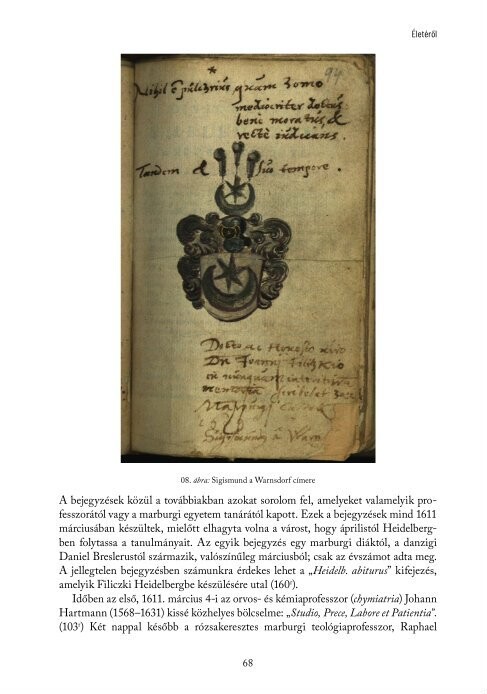 Életéről
94
Nihil e pulchrius quam homo
mediocriter doctus
bene moratus, &
recte iudicans.
Tandem & suo tempore.
Docto ac Honesto viro
Dn Joanni
Marpurgi
Sigismund a Warn
08. ábra: Sigismund a Warnsdorf címere
A bejegyzések közül a továbbiakban azokat sorolom fel, amelyeket valamelyik pro-
fesszorától vagy a marburgi egyetem tanárától kapott. Ezek a bejegyzések mind 1611
márciusában készültek, mielőtt elhagyta volna a várost, hogy áprilistól Heidelberg-
ben folytassa a tanulmányait. Az egyik bejegyzés egy marburgi diáktól, a danzigi
Daniel Breslerustól származik, valószínűleg márciusból; csak az évszámot adta meg.
A jellegtelen bejegyzésben számunkra érdekes lehet a „Heidelb. abiturus” kifejezés,
amelyik Filiczki Heidelbergbe készülésére utal (160ʳ).
Időben az első, 1611. március 4-i az orvos- és kémiaprofesszor (chymiatria) Johann
Hartmann (1568–1631) kissé közhelyes bölcselme: „Studio, Prece, Labore et Patientia”.
(103ʳ) Két nappal később a rózsakeresztes marburgi teológiaprofesszor, Raphael
68